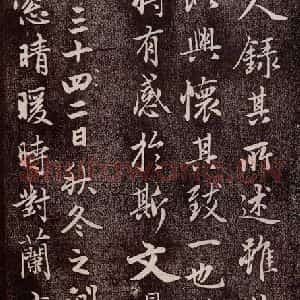 人錄其所述雖
以興懷其致一也
將有感於斯文
三十四二日秋冬之
晴暖時對蘭